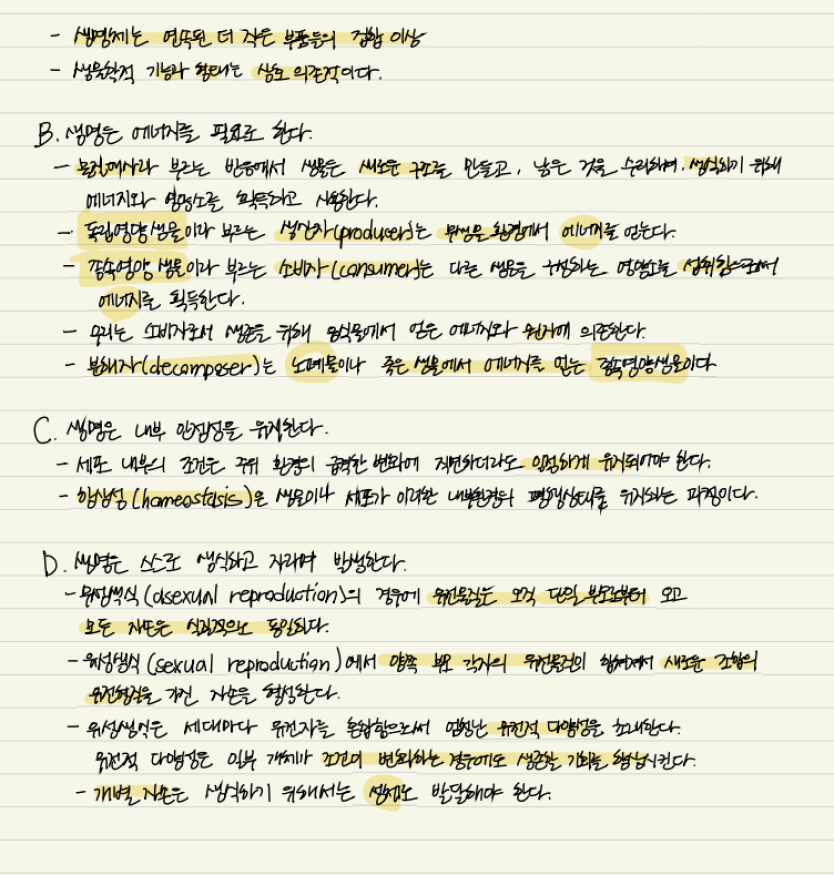 - 생명체는 연속된 더 작은 부품들의 집합 이상
- 생물학적 기능과 형태는 상호 의존적이다.
B. 생명은 에너지를 필요로 한다.
- 물질대사라 부르는 반응에서 생물은 새로운 구조를 만들고, 낡은 것을 수리하며, 생식하기 위해
에너지와 영양소를 획득하고 사용한다.
- 독립영양 생물이라 부르는 생산자(producer)는 무생물 환경에서 에너지를 얻는다.
- 종속영양 생물이라 부르는 소비자(consumer)는 다른 생물을 구성하는 영양소를 섭취함으로써
에너지를 획득한다.
- 우리는 소비자로서 생존을 위해 음식물에서 얻은 에너지와 원자에 의존한다.
- 분해자(decomposer)는 노폐물이나 죽은 생물에서 에너지를 얻는 종속영양생물이다
C. 생명은 내부 안정성을 유지한다.
- 세포 내부의 조건은 주위 환경의 급격한 변화에 직면하더라도 일정하게 유지되어야 한다.
- 항상성(homeostasis)은 생물이나 세포가 이러한 내부환경의 평형상태를 유지하는 과정이다.
D. 생명은 스스로 생식하고 자라며 발생한다.
- 무성생식(asexual reproduction)의 경우에 유전물질은 오직 단일 부모로부터 오고
모든 자손은 실질적으로 동일하다.
- 유성생식(sexual reproduction)에서 양쪽 부모 각자의 유전물질이 합쳐져서 새로운 조합의
유전형질을 가진 자손을 형성한다.
- 유성생식은 세대마다 유전자를 혼합함으로써 엄청난 유전적 다양성을 초래한다.
유전적 다양성은 일부 개체가 조건이 변화하는 경우에도 생존할 기회를 향상시킨다.
- 개별 자손은 생식하기 위해서는 성체로 발달해야 한다.